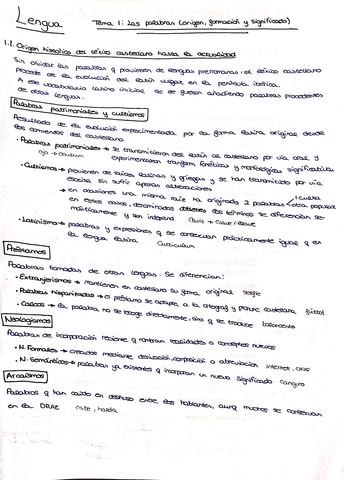 Lengua
Tema 1: Las palabras (origen, formación y significado)
1.1. Origen histórico del léxico castellano hasta la actualidad
Sin olvidar las palabras q provienen de lenguas prerromanas, el léxico castellano
procede de la evolución del latín vulgar en la península ibérica.
A ese vocabulario latino inicial se le fueron añadiendo palabras procedentes
de otras lenguas.
Palabras patrimoniales y cultismos
Resultado de la evolución experimentada por la forma latina original desde
los comienzos del castellano
• Palabras patrimoniales → se transmitieron del latín al castellano por vía oral y
experimentaron transform fonéticas y morfológicas significativas
ojo →
• Cultismos → provienen de raíces latinas y griegas y se han transmitido por vía
sin sufrir apenas alteraciones
→ en ocasiones una misma raíz ha originado 2 palabras 1 culta otra popular
en estos casos, denominados dobletes los términos se diferencian se-
mánticamente y son independ Clavis → clave/llave
• Latinismo → palabras y expresiones q se conservan prácticamente igual q en
la lengua latina Curriculum
Préstamos
Palabras tomadas de otras lenguas. Se diferencian:
• Extranjerismos → mantienen en castellano su forma original
• Palabras hispanizadas → el préstamo se adapta a la ortograf y pronunc castellana fútbol
• Calcos → la palabra no se recoge directamente, sino q se traduce baloncesto
Neologismos
Palabras de incorporación reciente q nombran realidades o conceptos nuevos
• N. Formales → creados mediante derivación, composición o abreviación internet,
• N. Semánticos → palabras ya existentes q incorporan un nuevo significado canguro
Arcaísmos
Palabras q han caído en desuso entre los hablantes, aunq muchos se conservan
en el DRAE